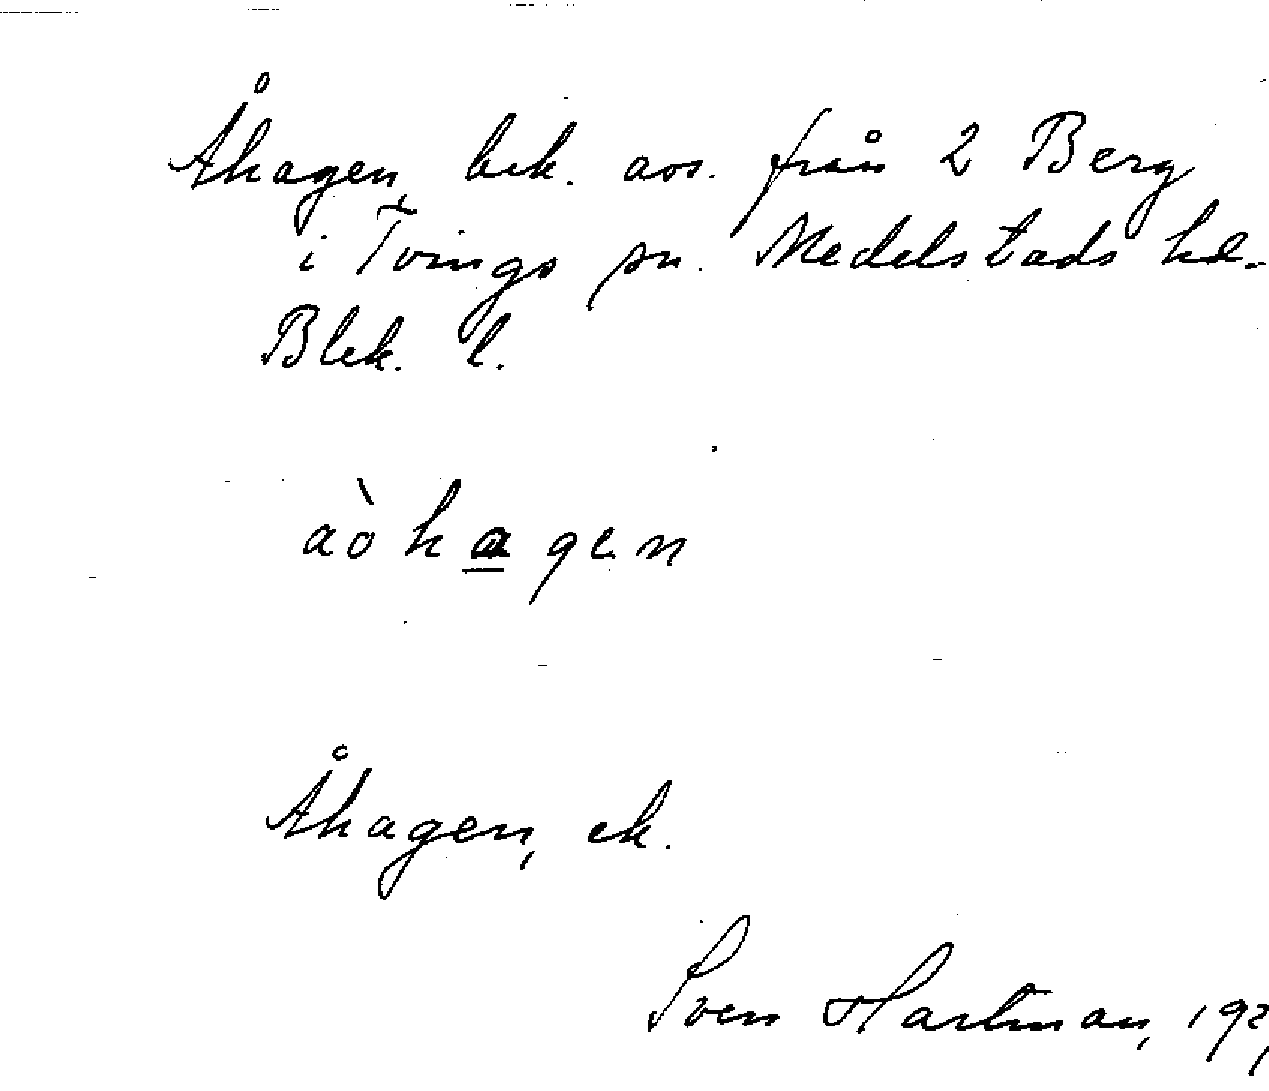 Åhagen, bek. avs. från 2 Berg
i Tvings sn. Medelstads hd.
Blek. l.
aòhagen
Åhagen, ek.
Sven Hartman, 192